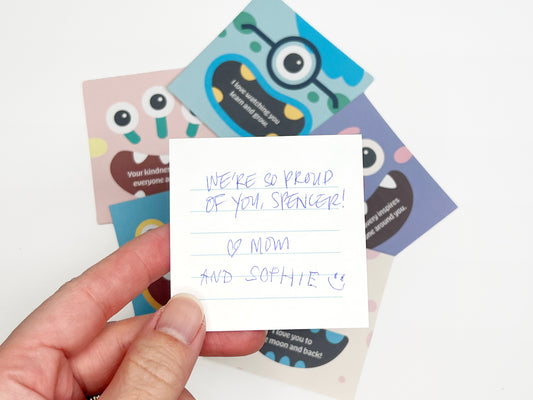 I love watching you
learn and grow.
Your kindness
everyone a
very inspires
ne around you.
WE'RE SO PROUD
OF YOU, SPENCER!
♡ MOM
AND SOPHIE ☺
I love you to
moon and back!